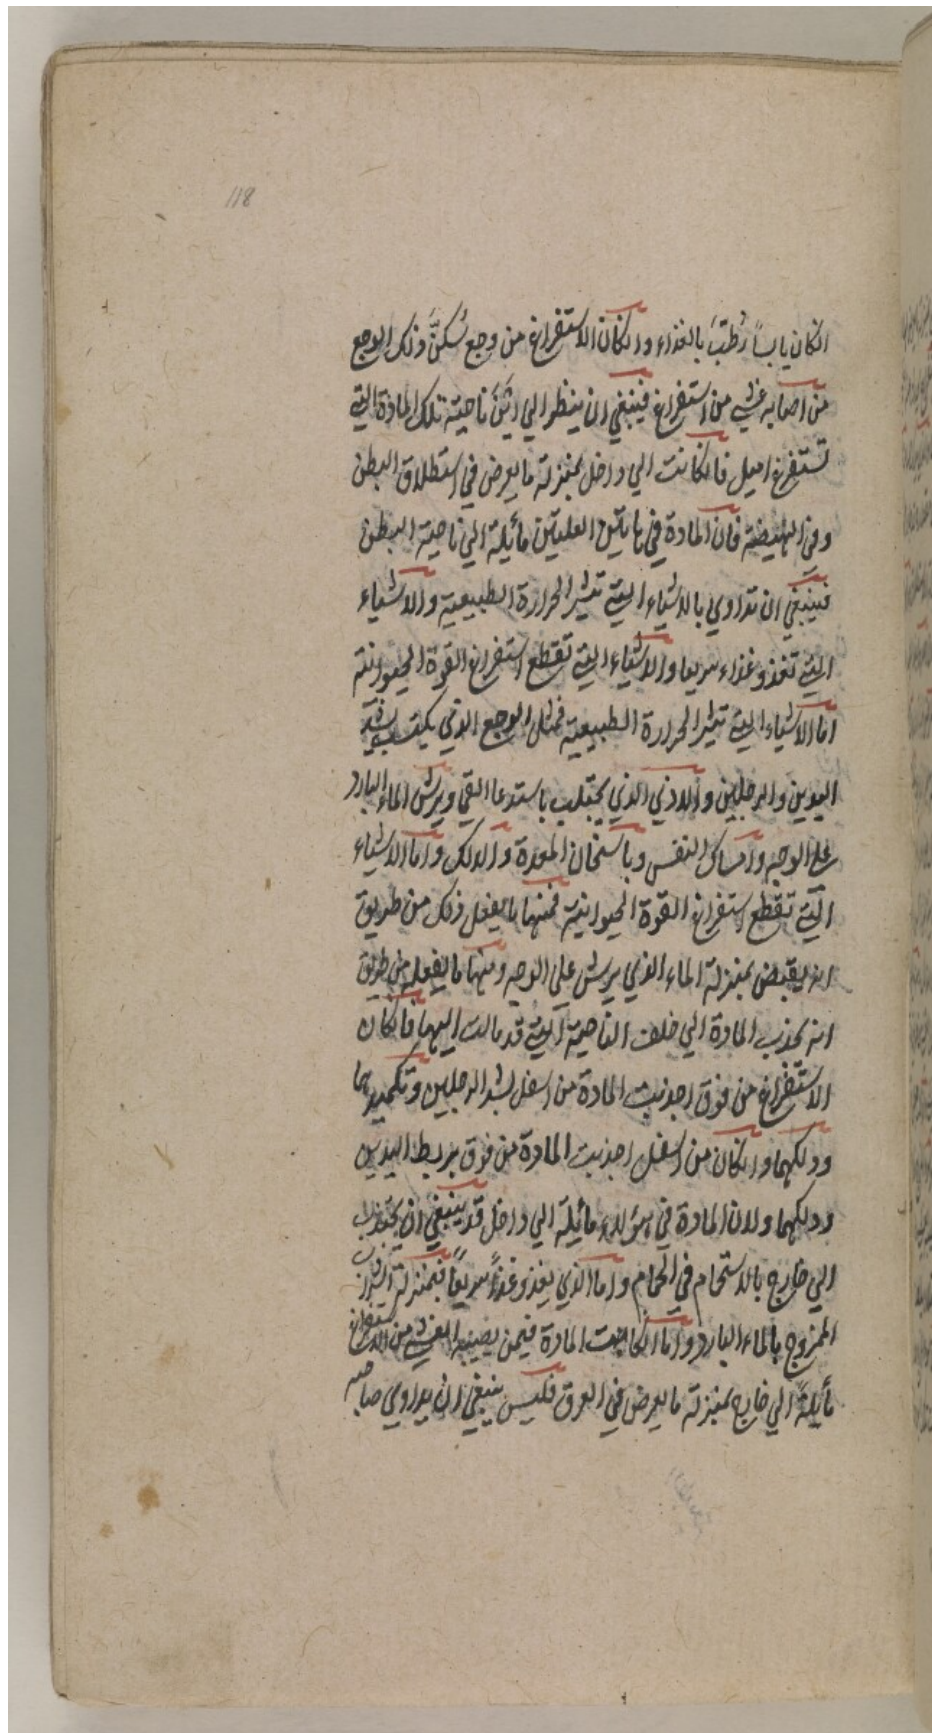 118
انكان يابساً رُطبّ بالغذاء وانكان الاستفراغ من وجع سُكنّ ذلك الوجع
من اصابه غشي من استفراغ فينبغي ان ينظر الي ايّ ناحية تلك المادة التي
تستفرغ اميل فانكانت الي داخل بمنزلة ما يعرض في استطلاق البطن
وفي الهيضة فان المادة في هاتين العلتين مائلة الي ناحية البطن
فينبغي ان تداوي بالاشياء التي تثير الحرارة الطبيعية والاشياء
التي تغذو غذاء سريعا والاشياء التي تقطع استفراغ القوة الحيوانية
اما الاشياء التي تثير الحرارة الطبيعية فمثل الوجع الذي يكتسب بشد
اليدين والرجلين والاذي الذي يجتلب باستدعا القي وبرش الماء البارد
علي الوجه وامساك النفس وباسخان المعدة والدلك واما الاشياء
التي تقطع استفراغ القوة الحيوانية فمنها ما يفعل ذلك من طريق
انه يقبض بمنزلة الماء الذي يرش علي الوجه ومنها ما يفعله من طريق
انه يجذب المادة الي خلاف الناحية التي قد مالت اليها فانكان
الاستفراغ من فوق اجذبت المادة من اسفل بشد الرجلين وتكميدهما
ودلكهما وانكان من اسفل اجذبت المادة من فوق بربط اليدين
ودلكهما ولان المادة في هؤلاء مائلة الي داخل قد ينبغي ان يجتذب
الي خارج بالاستحمام في الحمام واما الذي يغذو غذاً سريعاً فبمنزلة الشراب
الممزوج بالماء البارد واما انكانت المادة فيمن يصيبه الغشي من الاستفراغ
مائلةً الي خارج بمنزلة ما يعرض في العرق فليس ينبغي ان يداوي صاحبه